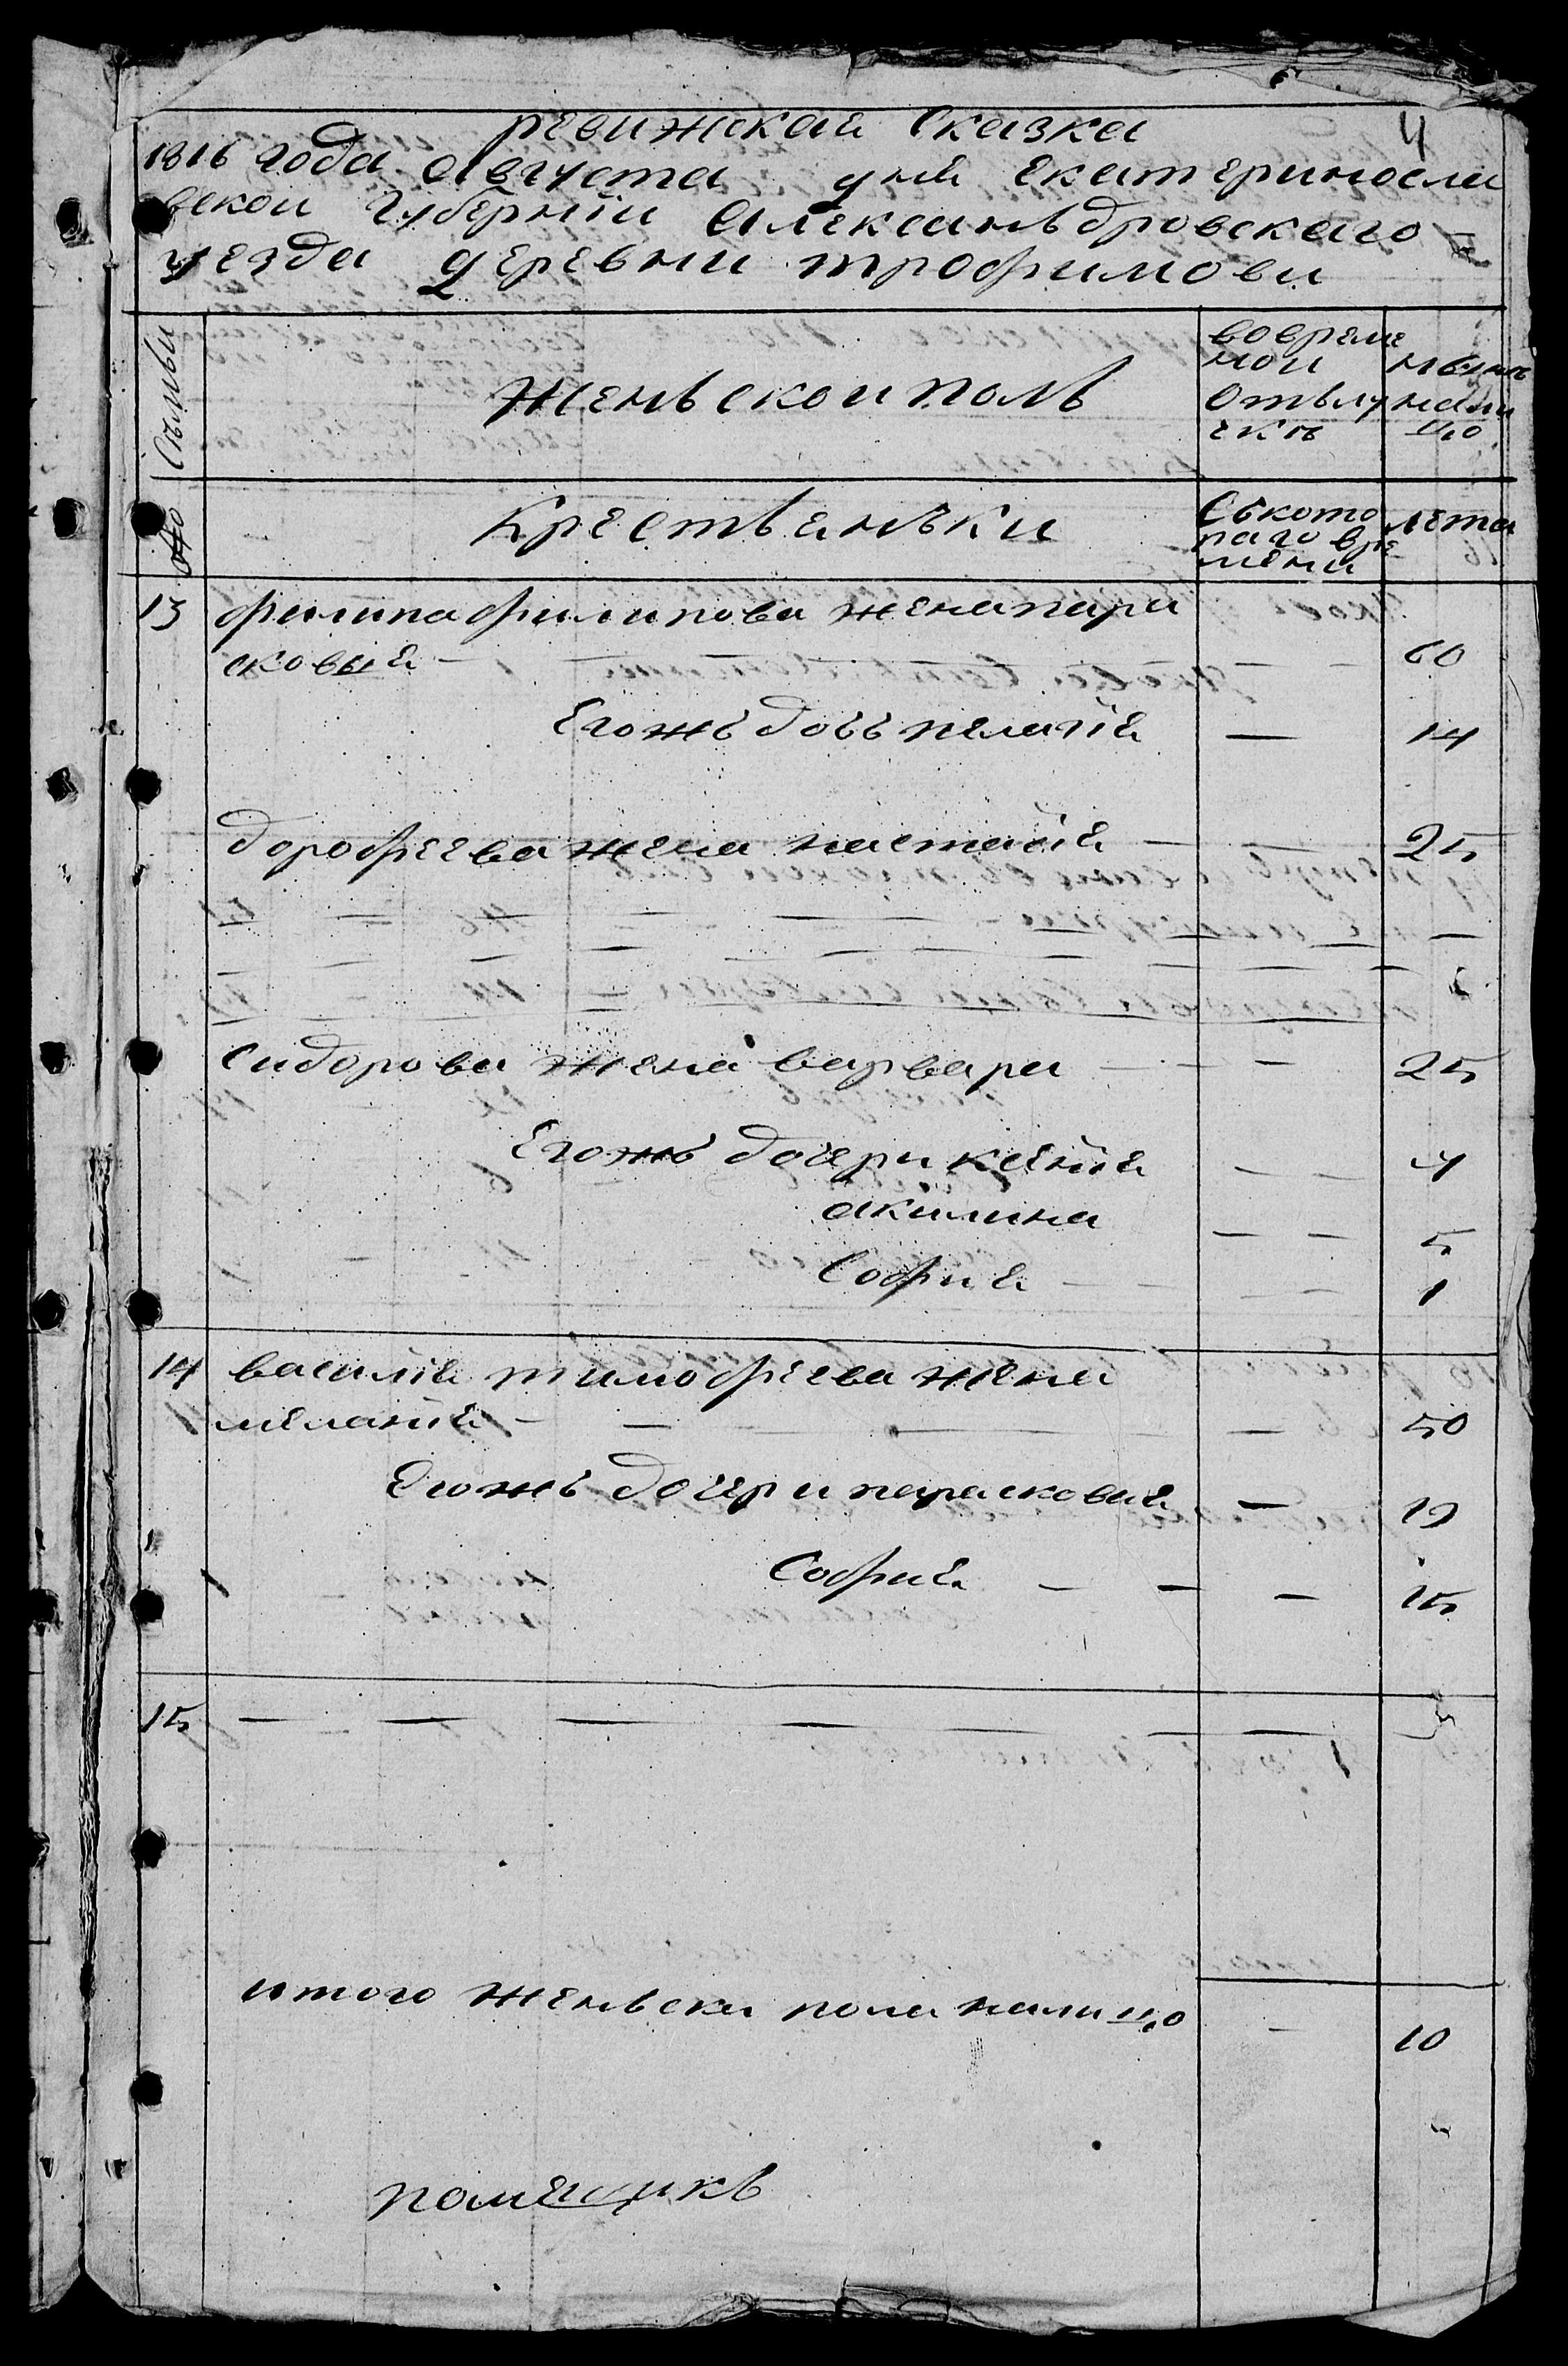 4
ревижская Сказка
1816 года августа дня екатериносла
вской губерниі Александровскаго
уезда деревни трофимови
№ Семьи
женьской полъ
во време
ной
отьлу
чкъ
ныне
нали
цо
Крестьянъки
Съкото
раго вре
мени
лета
13 филипа филипова жена пара
сковья — — 60
Егожъ дочь пелагіа — 14
дорофеева жена настасіа — 25
Сидорова жена варвара — 25
Егожъ дочери ксеніа — — 4
акилина — — 5
Софиа — — 1
14 василіа тимофеева жена
меланіа — — 50
Егожъ дочери парасковиа — 19
Софиа — — — 15
15 — — — — — —
итого женьска пола налицо — 10
помещикъ